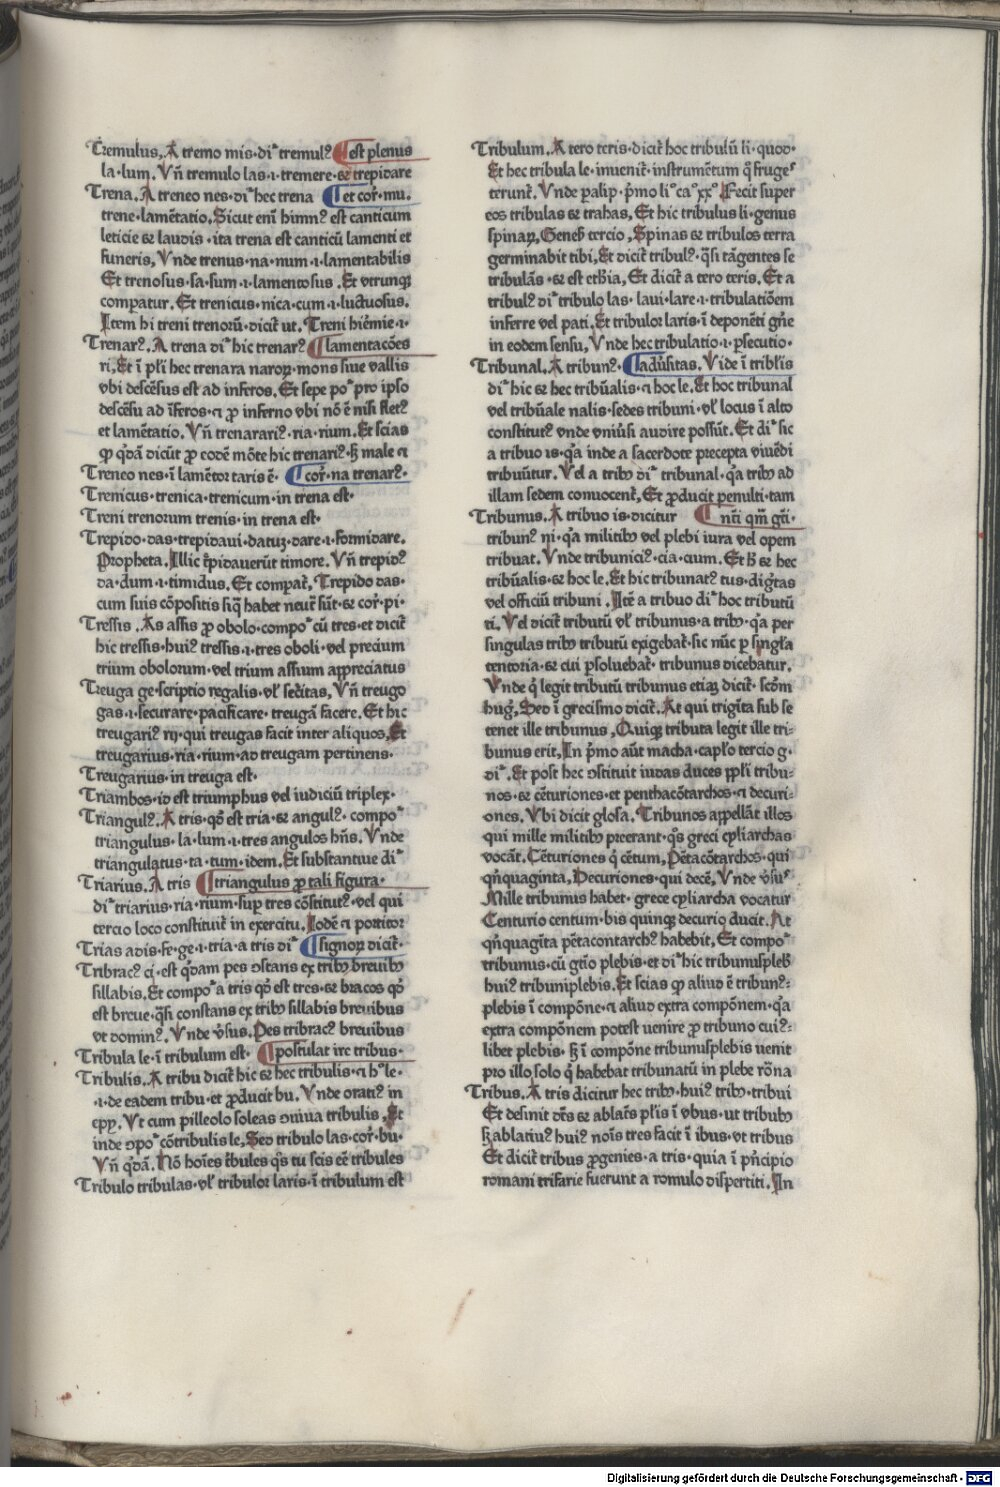 Tremulus. A tremo mis· di͛ tremulꝰ ¶ est plenus
la·lum. Vñ tremulo las·i·tremere·⁊ trepidare
Trena. A treneo nes·di͛ hec trena ¶ et cor͛·mu.
trene·lamētatio. Sicut eni himnꝰ est canticum
leticie ⁊ laudis·ita trena est canticū lamenti et
funeris, Vnde trenus·na·num·i·lamentabilis
Et trenosus·sa·sum·i·lamentosus. Et vtrunqꝫ
comparatur. Et trenicus·nica·cum·i·luctuosus.
Item hi treni trenorū·dicit͛ ut. Treni hie͛mie·i·
Trenarꝰ. A trena di͛ hic trenarꝰ ¶ lamentacōes
ri, Et ī pl͛i hec trenara naroꝝ·mons siue vallis
vbi descēsus est ad inferos. Et sepe po͛ pro ipso
descēsu ad īferos·⁊ ꝓ inferno vbi nō ē nisi fletꝰ
et lamētatio. Vñ trenarariꝰ·ria·rium. Et scias
ꝙ q͛dā dicūt ꝓ eodē mōte hic trenariꝰ·ꝫ male ⁊
Treneo nes·ī lamētor taris ē· ¶ cor͛·na trenarꝰ·
Trenicus·trenica·trenicum·in trena est·
Treni trenorum trenis·in trena est·
Trepido·das·trepidaui·datuꝝ·dare·i·formidare.
Propheta. Illic t͛pidauerūt timore. Vñ trepidꝰ
da·dum·i·timidus. Et compat͛. Trepido das·
cum suis cōpositis siq͛ habet neut͛ sūt·⁊ cor͛·pi·
Tressis. As assis ꝓ obolo·compo͛ cū tres·et dicit͛
hic tressis·huiꝰ tressis·i·tres oboli·vel precium
trium obolorum·vel trium assium appreciatus
Treuga ge·scriptio regalis·vl͛ secūritas, Vñ treugo
gas·i·securare·pacificare·treugā facere. Et hic
treugariꝰ rij·qui treugas facit inter aliquos, Et
treugarius·ria·rium·ad treugam pertinens·
Treugarius·in treuga est·
Triambos·id est triumphus vel iudiciū triplex·
Triangulꝰ. A tris·qd͛ est tria·⁊ angulꝰ·compo͛
triangulus·la·lum·i·tres angulos hn̄s. Vnde
triangulatus·ta·tum·idem. Et substantiue di͛
Triarius. A tris ¶ triangulus ꝓ tali figura·
di͛ triarius·ria·rium·suꝑ tres cōstitutꝰ·vel qui
tercio loco constituit͛ in exercitu. Iodē ⁊ portitor
Trias adis·fe·ge·i·tria·a tris di͛ ¶ signoꝝ dicit͛·
Tribracꝰ ci·est q͛dam pes ꝯstans ex tribꝫ breuibꝫ
sillabis. Et compo͛ a tris qd͛ est tres·⁊ bracos qd͛
est breue·q͛si constans ex tribꝫ sillabis breuibus
vt dominꝰ. Vnde v͛sus. Pes tribracꝰ breuibus
Tribula le·ī tribulum est· ¶ postulat ire tribus·
Tribulis. A tribu dicit͛ hic ⁊ hec tribulis·⁊ h͛ le·
·i·de eadem tribu·et ꝓducit bu. Vnde oratiꝰ in
epꝑ. Vt cum pilleolo soleas ꝯuiua tribulis. Et
inde ꝯpo͛ cōtribulis le, Sed tribulo las·cor͛·bu·
Vñ q͛dā. Nō hoīes t͛bules q͛s tu scis eē tribules
Tribulo tribulas·vl͛ tribulor laris·ī tribulum est
Tribulum. A tero teris·dicit͛ hoc tribulū li·quod·
Et hec tribula le·inuenit͛·instrumētum q͛ frugeˢ
terunt͛. Vnde ꝑalip͛·p͛mo li͛ ca͛ xx͛ Fecit super
eos tribulas ⁊ trahas, Et hic tribulus li·genus
spinaꝝ, Geneß tercio, Spinas ⁊ tribulos terra
germinabit tibi, Et dicit͛ tribulꝰ·q͛si tāgentes se
tribulās·⁊ est eth͛ia, Et dicit͛ a tero teris. Et a
tribulꝰ di͛ tribulo las·laui·lare·i·tribulatiōem
inferre vel pati. Et tribulor laris·ī deponēti gn͛e
in eodem sensu, Vnde hec tribulatio·i·ꝑsecutio·
Tribunal. A tribunꝰ· ¶ adu͛sitas. Vide ī trib͛lis
di͛ hic ⁊ hec tribūalis·⁊ hoc le. Et hoc tribunal
vel tribūale nalis·sedes tribuni·vl͛ locus ī alto
constitutꝰ vnde vniu͛si audire possūt. Et di͛ sic
a tribuo is·q͛a inde a sacerdote precepta viuēdi
tribuūtur. Vel a tribꝫ di͛ tribunal·q͛a tribꝫ ad
illam sedem conuocent͛, Et ꝓducit penulti·tam
Tribunus. A tribuo is·dicitur ¶ nti qm̄ gti·
tribunꝰ ni·q͛a militibꝫ vel plebi iura vel opem
tribuat. Vnde tribuniciꝰ·cia·cum. Et ħ ⁊ hec
tribūalis·⁊ hoc le. Et hic tribunatꝰ tus·dig͛tas
vel officiū tribuni. Itē a tribuo di͛ hoc tributū
ti. Vel dicit͛ tributū vl͛ tribunus·a tribꝫ·q͛a per
singulas tribꝫ tributū exigebat͛·sic nūc ꝑ sing͛la
tentoria·⁊ cui ꝑsoluebat͛·tribunus dicebatur.
Vnde q͛ legit tributū tribunus etiaꝫ dicit͛·scd͛m
hug͛, Sed ī grecismo dicit͛. At qui trigīta sub se
tenet ille tribunus, Quiqꝫ tributa legit ille tri-
bunus erit, In p͛mo aūt macha·cap͛lo tercio g·
di͛. Et post hec ꝯstituit iudas duces pp͛li tribu-
nos·⁊ cēturiones·et penthacōtarchos·⁊ decuri-
ones. Vbi dicit glosa. Tribunos appellāt illos
qui mille militibꝫ preerant·q͛s greci cyliarchas
vocāt. Cēturiones q͛ cētum, Pētacōtarchos·qui
qn͛quaginta, Decuriones·qui decē, Vnde v͛suˢ
Mille tribunus habet·grece cyliarcha vocatur
Centurio centum·bis quinqꝫ decurio ducit. At
qn͛quagīta pētacontarchꝰ habebit, Et compo͛
tribunus·cū gtīo plebis·et di͛ hic tribunusplebß
huiꝰ tribuniplebis. Et scias ꝙ aliud ē tribunꝰ-
plebis ī compōne·⁊ aliud extra compōnem·q͛a
extra compōnem potest uenire ꝓ tribuno cuiꝰ-
libet plebis·ꝫ ī compōne tribunusplebis uenit
pro illo solo q͛ habebat tribunatū in plebe rōna
Tribus. A tris dicitur hec tribꝫ·huiꝰ tribꝫ·tribui
Et desinit dt͛s ⁊ ablat͛s pl͛is ī vbus·ut tribubꝫ
ꝫ ablatiuꝰ huiꝰ noīs tres facit ī ibus·vt tribus
Et dicit͛ tribus ꝓgenies·a tris·quia ī p͛ncipio
romani trifarie fuerunt a romulo dispertiti. In
Digitalisierung gefördert durch die Deutsche Forschungsgemeinschaft · DFG